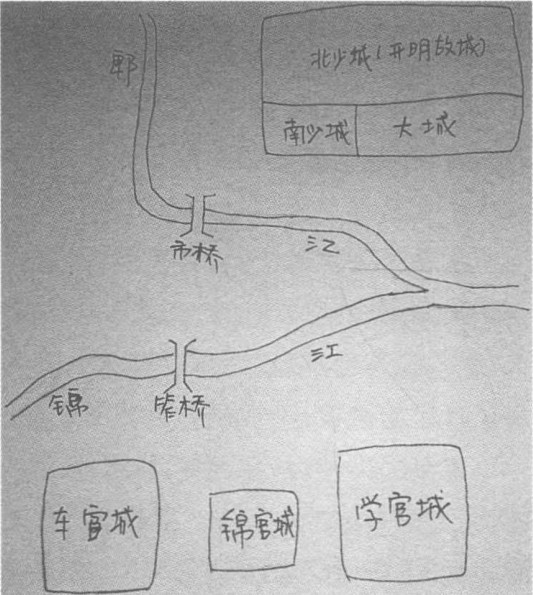 郫
北少城(开明故城)
南少城
大城
市桥
江
江
锦
笮桥
车官城
锦官城
学官城